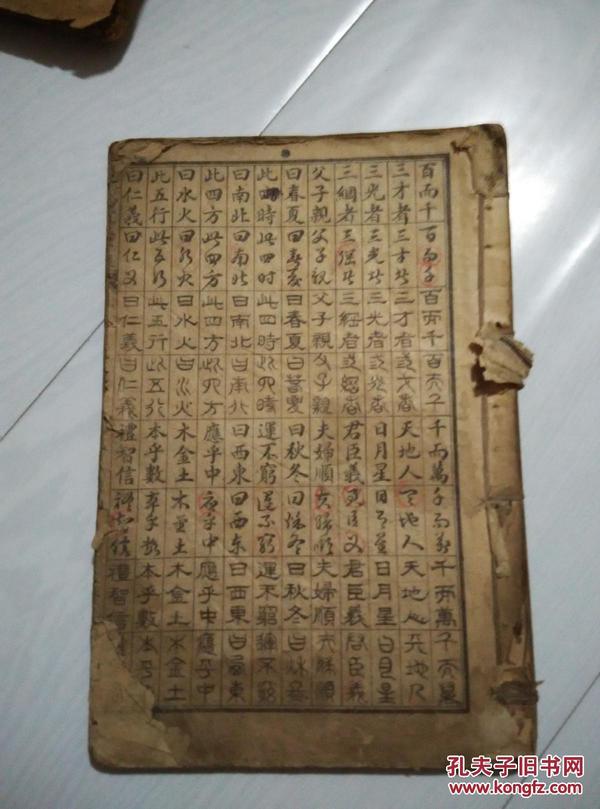 百而千百而千百而千百而千千而萬千而萬千而萬千而萬
三才者三才者三才者三才者天地人天地人天地人天地人
三光者三光者三光者三光者日月星日月星日月星日月星
三綱者三綱者三綱者三綱者君臣義君臣義君臣義君臣義
父子親父子親父子親父子親夫婦順夫婦順夫婦順夫婦順
曰春夏曰春夏曰春夏曰春夏曰秋冬曰秋冬曰秋冬曰秋冬
此四時此四時此四時此四時運不窮運不窮運不窮運不窮
曰南北曰南北曰南北曰南北曰西東曰西東曰西東曰西東
此四方此四方此四方此四方應乎中應乎中應乎中應乎中
曰水火曰水火曰水火曰水火木金土木金土木金土木金土
此五行此五行此五行此五行本乎數本乎數本乎數本乎
曰仁義曰仁義曰仁義曰仁義禮智信禮智信禮智信
孔夫子旧书网
www.kongfz.com